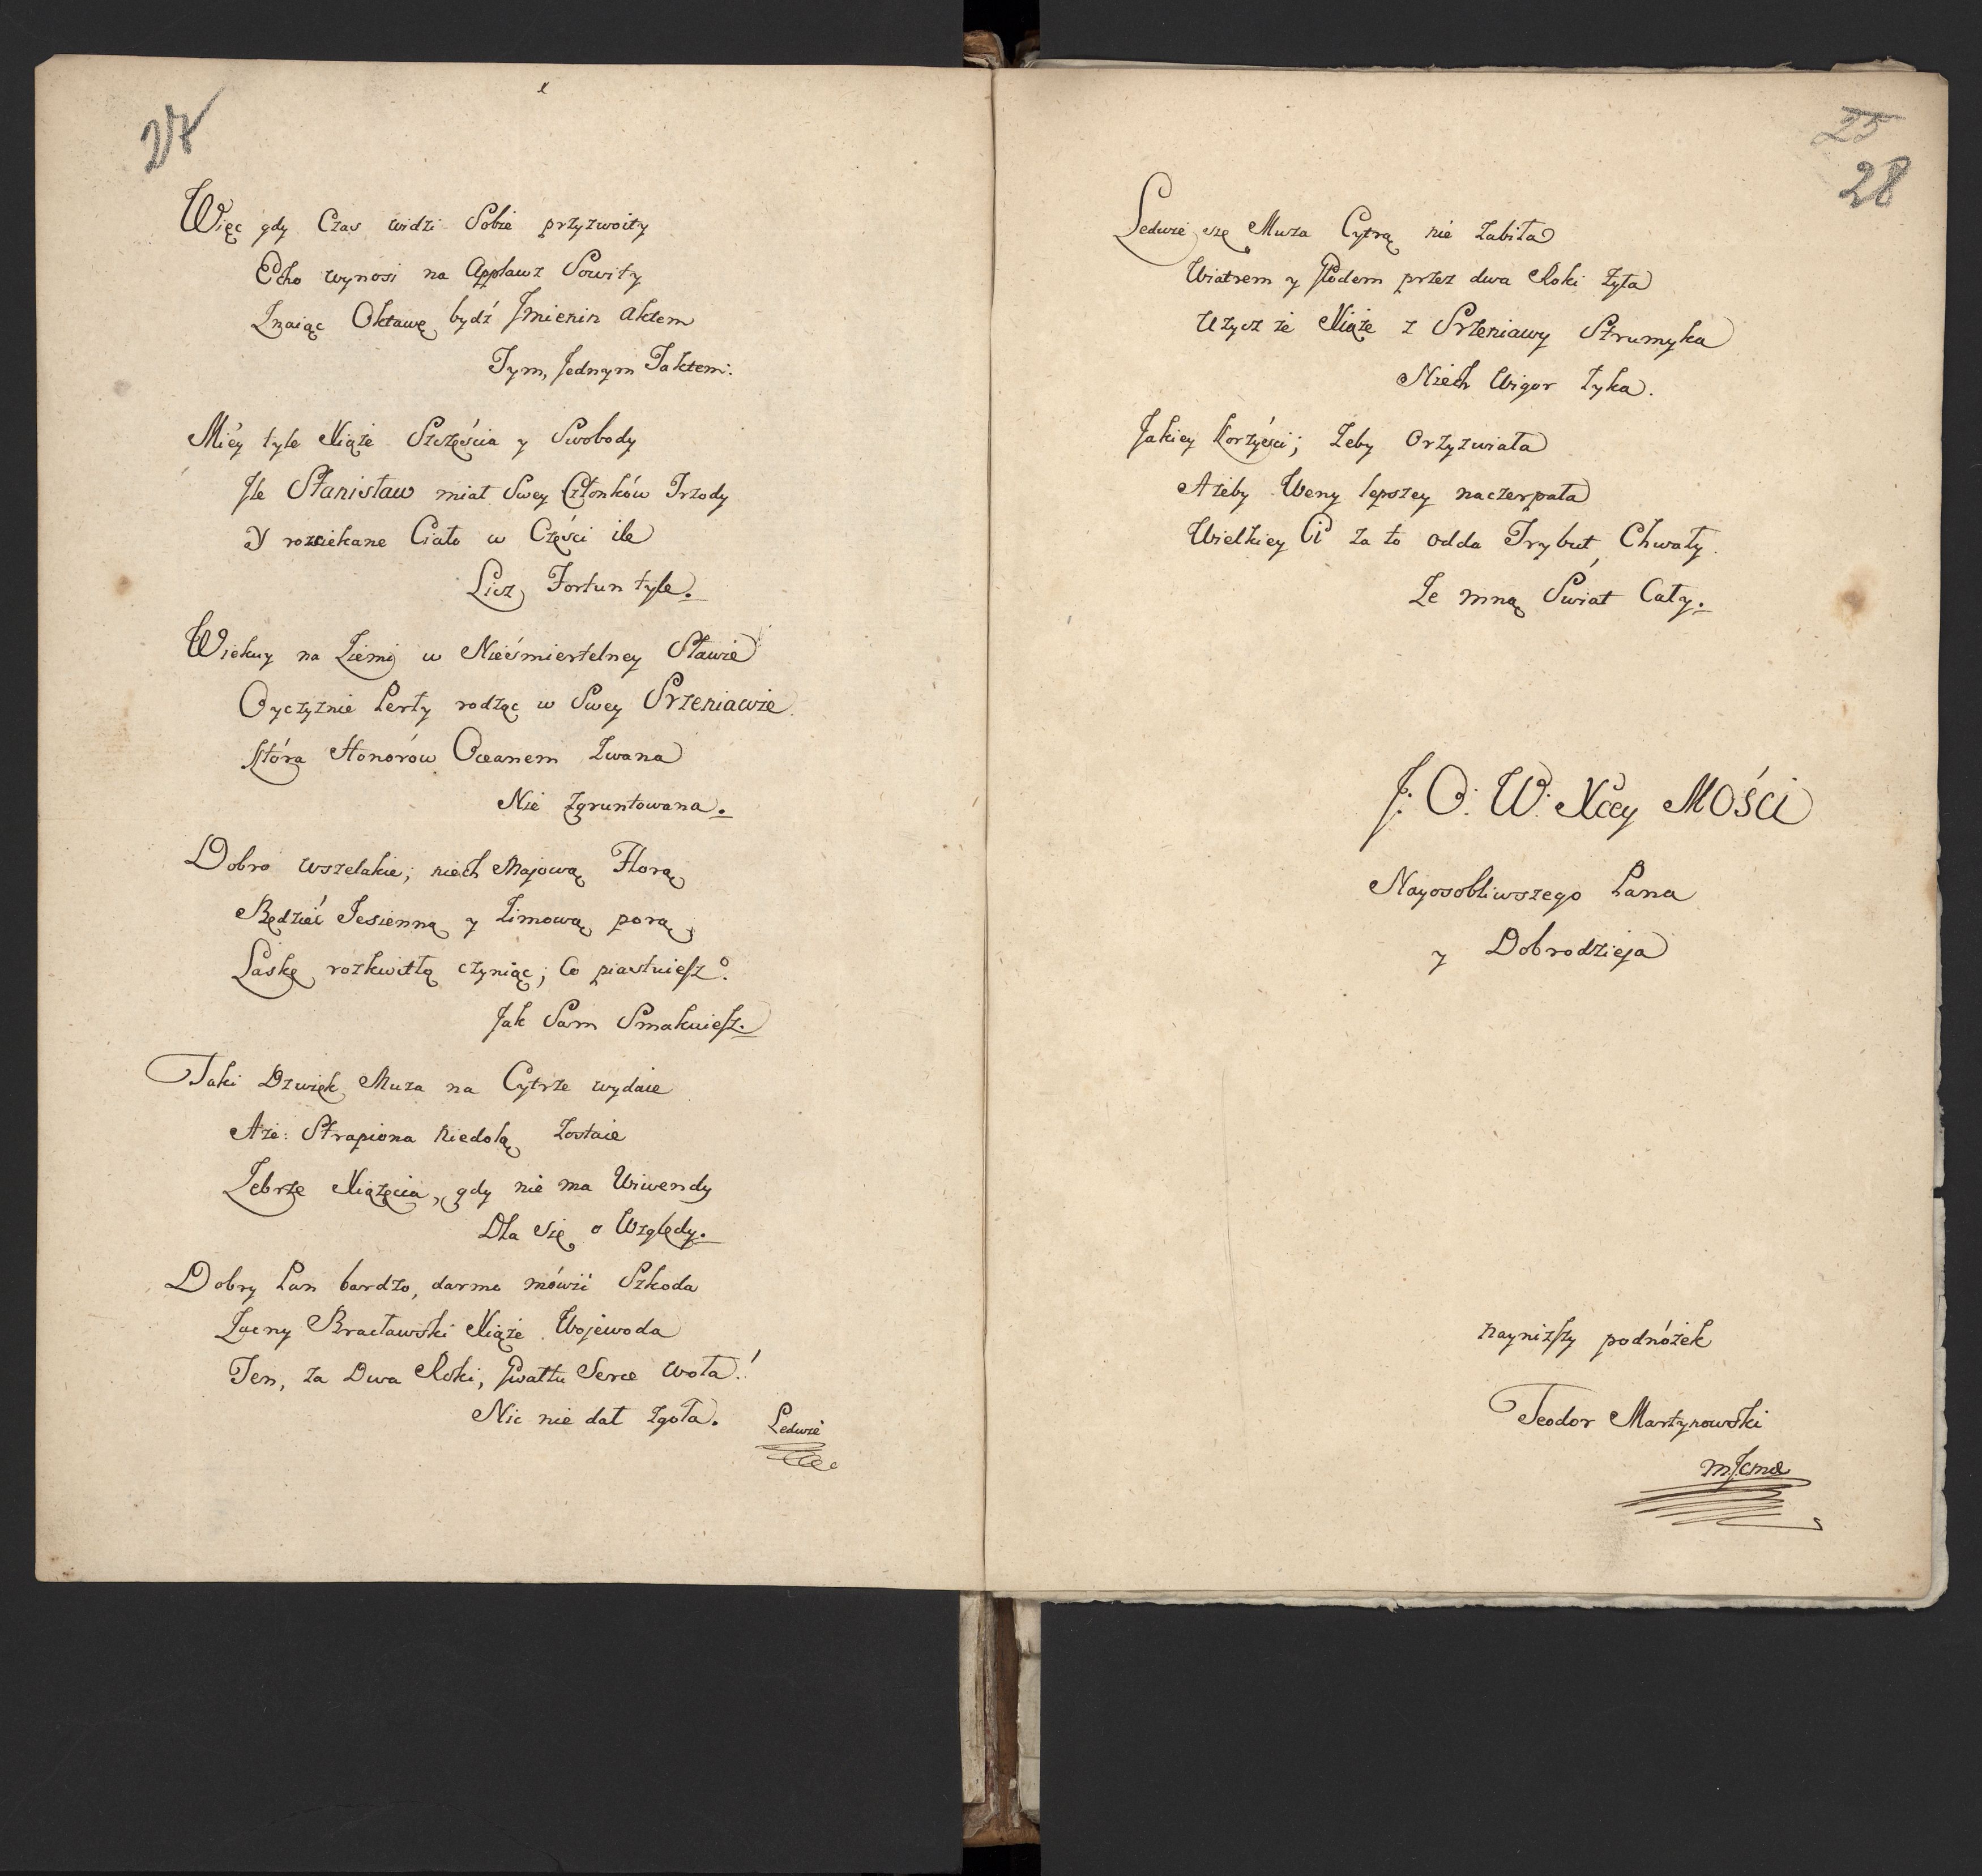 Więc gdy Czas widzi Sobie przyzwoity
Echo wynosi na Applauz Sowity
Znaiąc Oktawę bydź Jmienin Aktem
Tym, Jednym Taktem.
Miéy tyle Xiąże Szczęścia y Swobody
Jle Stanisław miał Swey Członków Trzody
Y rozsiekane Ciało w Części ile
Licz, Fortun tyle.
Wiekuy na Ziemi w Nieśmiertelney Sławie
Oyczyznie Perły rodząc w Swey Srzeniawie
Która Honorów Oceanem Zwana
Nie Zgruntowana.
Dobro wszelakie; niech Majową Florą
Będzieć Jesienną y Zimową porą
Laskę rozkwitłą czyniąc; Co piastuiesz.
Jak Sam Smakuiesz.
Taki Dzwięk Muza na Cytrze wydaie
Aże: Strapiona niedolą zostaie
Żebrze Xiążęcia, gdy nie ma Wiwendy
Dla Się o Względy.
Dobry Pan bardzo, darmo mówić Szkoda
Zacny Bracławski Xiąże Wojewoda
Ten, za Dwa Roki, Gwałtu Serce woła!
Nic nie dał zgoła.
Ledwie
25
28
Ledwie się Muza Cytrą nie zabiła
Wiatrem y Głodem przez dwa Roki żyła
Użycz że Xiąże z Srzeniawy Strumyka
Niech Wigor łyka.
Jakiey Korzyści; Żeby Orzyzwiała
Ażeby Weny lepszey naczerpała
Wielkiey Ci za to odda Trybut Chwały
Ze mną Świat Cały.
J: O: W: Xcey MOści
Nayosobliwszego Pana
y Dobrodzieja
nayniższy podnóżek
Teodor Martynowski